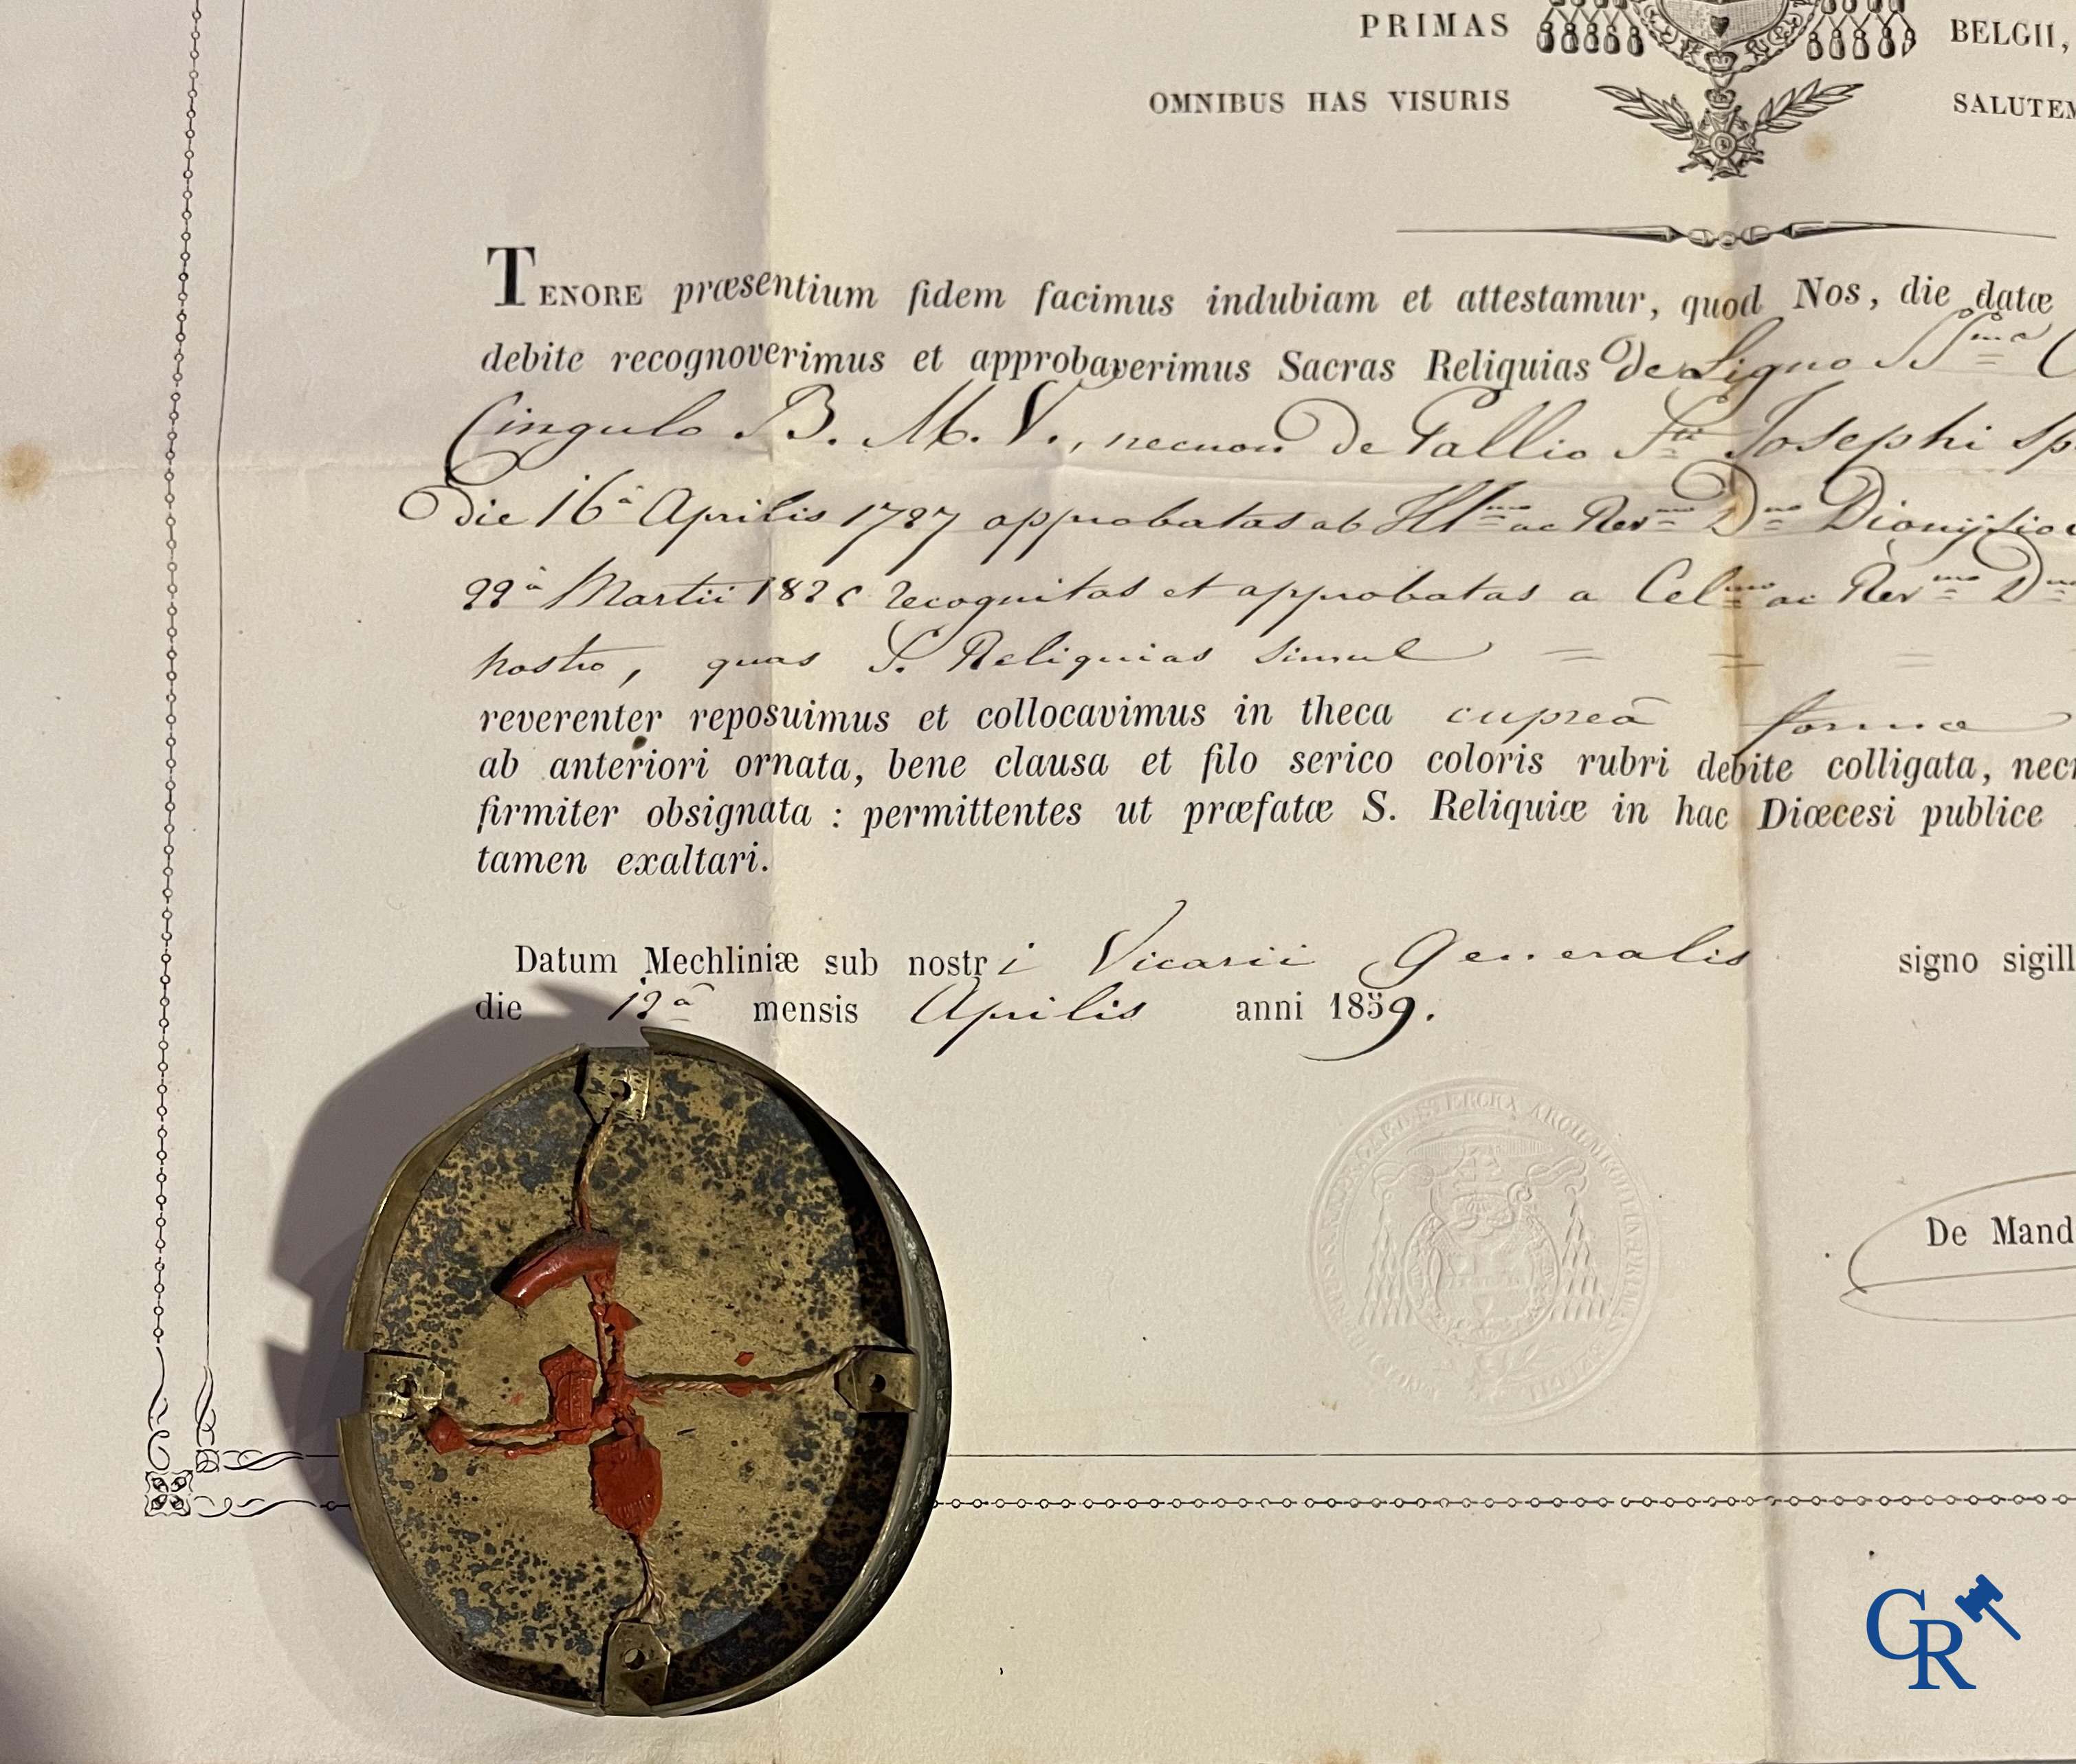 PRIMAS BELGII,
OMNIBUS HAS VISURIS SALUTEM
TENORE præsentium fidem facimus indubiam et attestamur, quod Nos, die datæ
debite recognoverimus et approbaverimus Sacras Reliquias de Ligno SSmæ
Cingulo B. M. V., necnon de Pallio Sti Josephi sp
die 16â Aprilis 1787 approbatas ab Illmo ac Revmo Dno Dionysio
22â Martii recognitas et approbatas a Celmo ac Revmo Dno
nostro, quas S. Reliquias simul = = =
reverenter reposuimus et collocavimus in theca cupreâ formæ
ab anteriori ornata, bene clausa et filo serico coloris rubri debite colligata, necn
firmiter obsignata : permittentes ut præfatæ S. Reliquiæ in hac Diœcesi publice
tamen exaltari.
Datum Mechliniæ sub nostri Vicarii Generalis signo sigill
die 12â mensis Aprilis anni 1859.
De Mand
CR